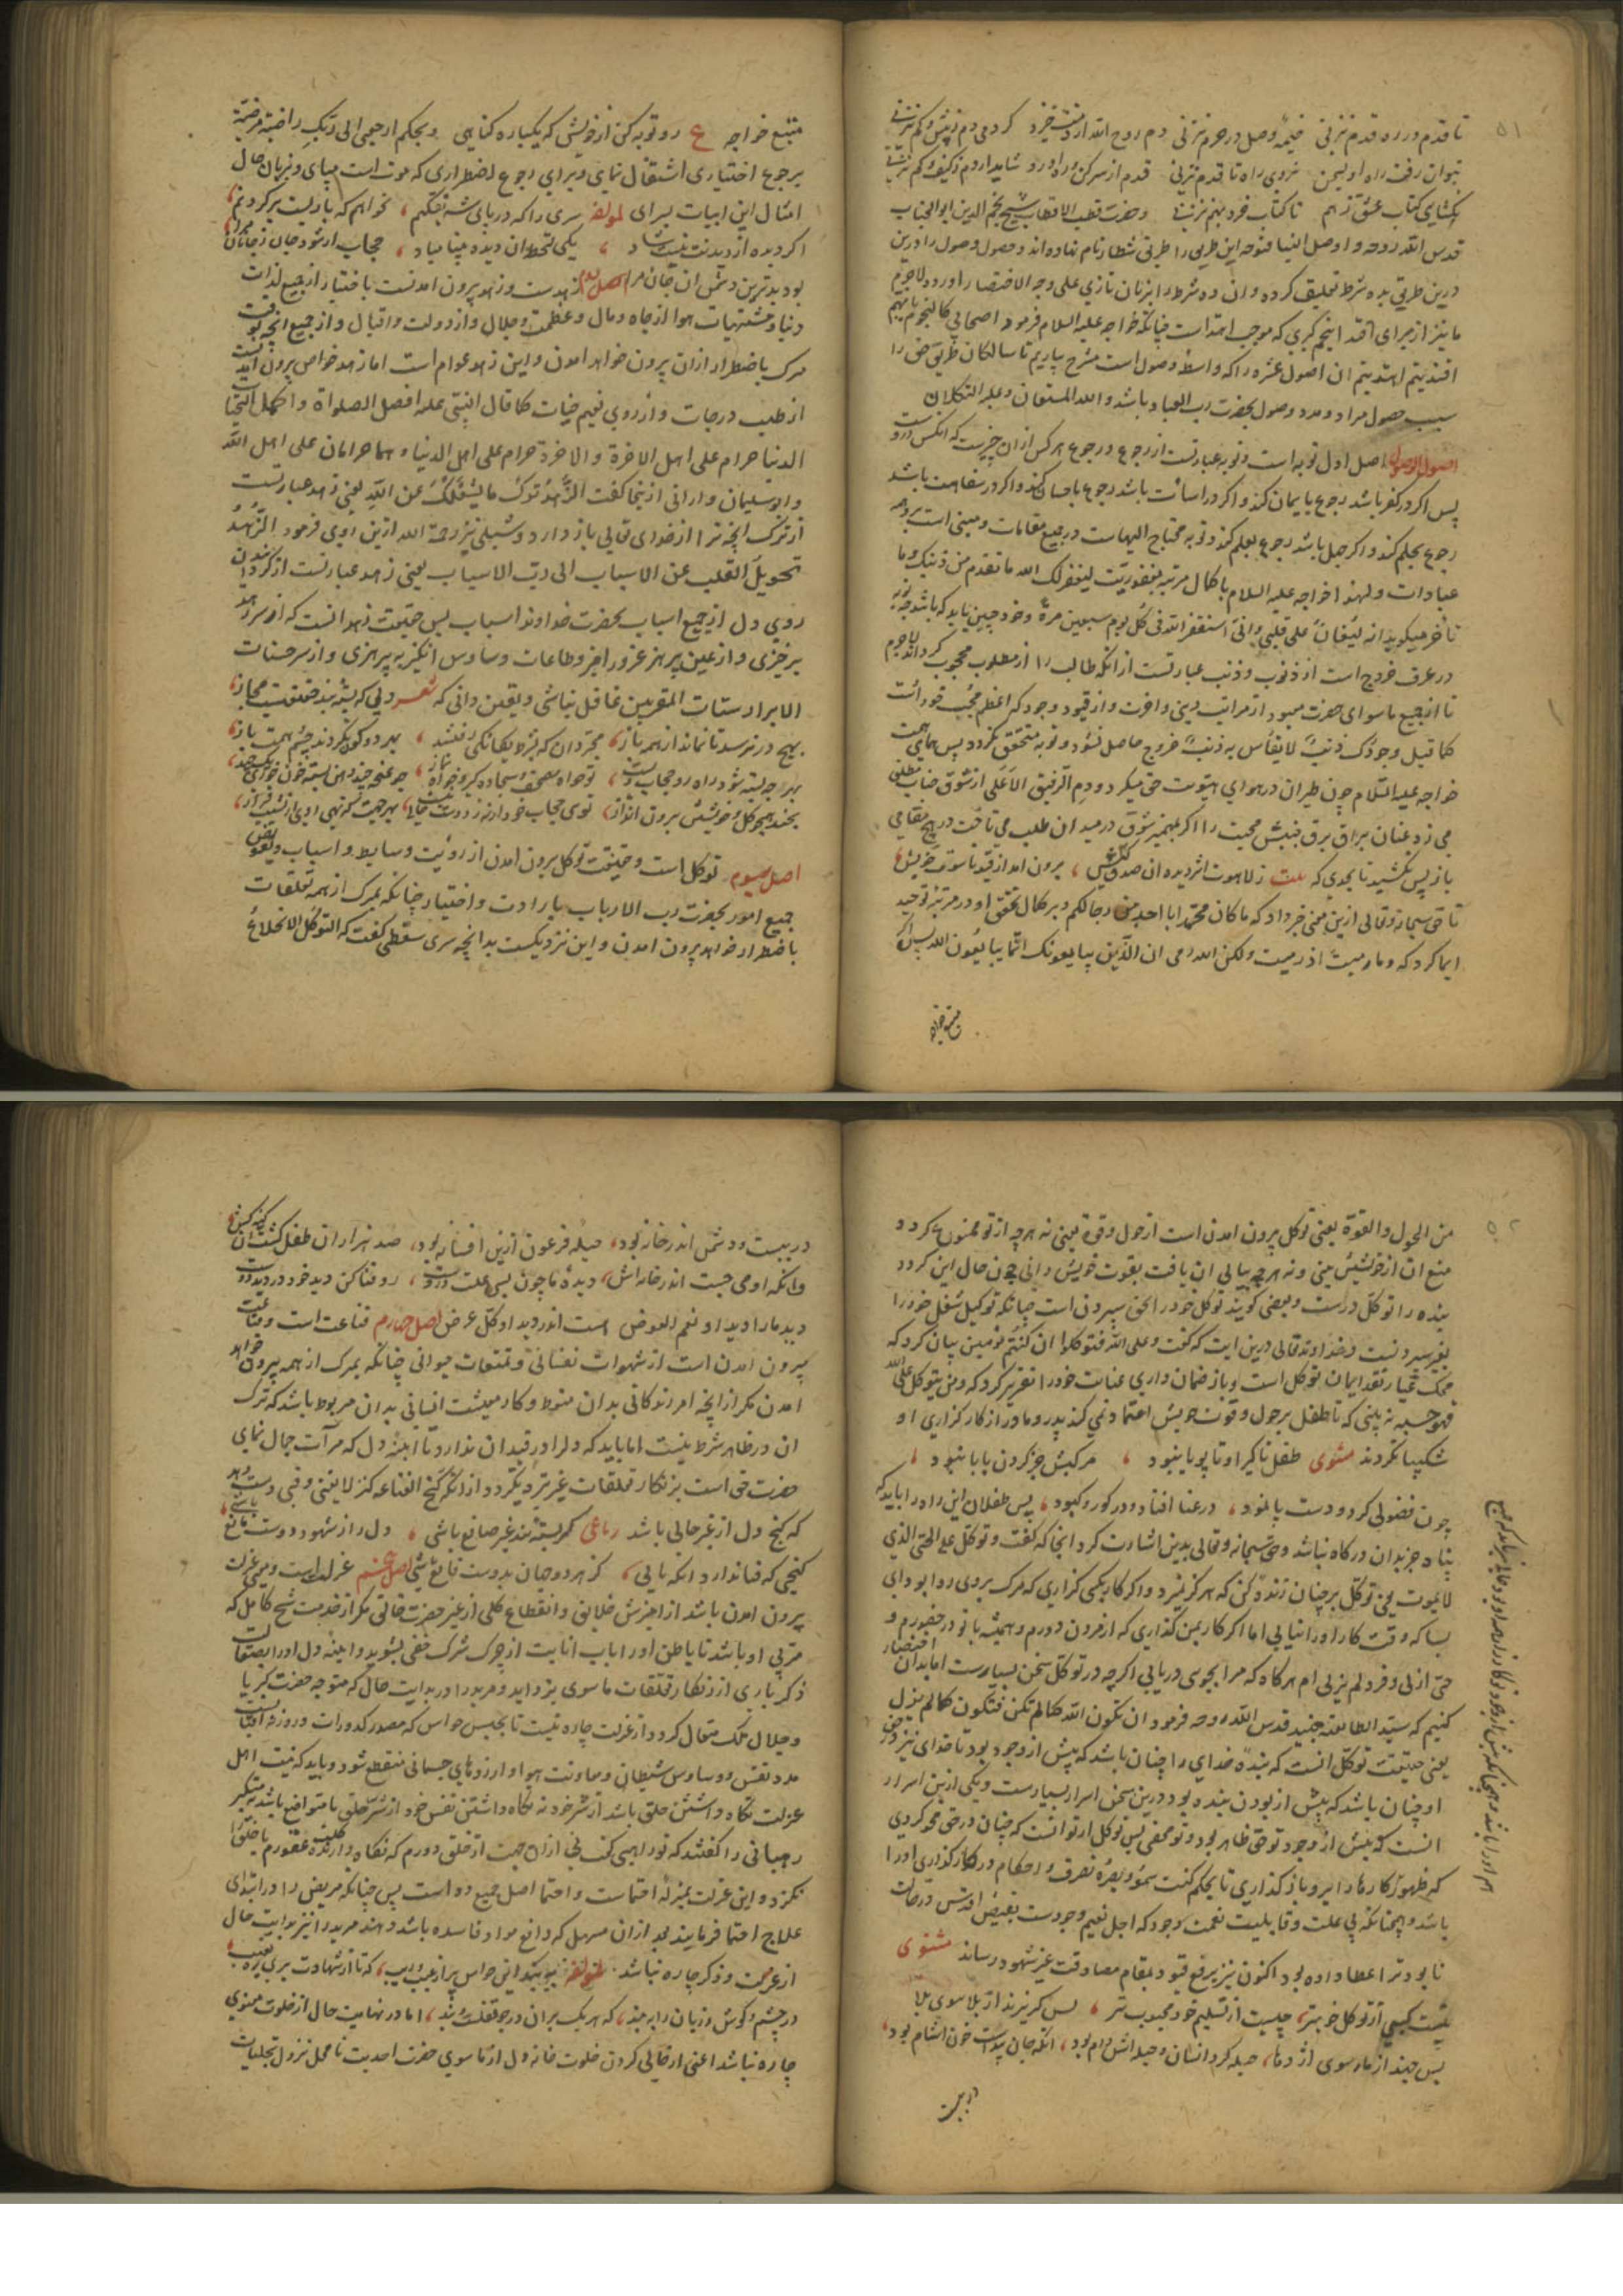 ۵۱
تا قدم در ره قدم نزنی خیمهٔ وصل در حرم نزنی دم روح الله از دمت خیزد کر دمی دم ز بیش و کم نزنی
نتوان رفت راه او لیکن نروی راه تا قدم نزنی قدم از سر کن و راه او رو
بکشای کتاب عشق ز هم تا کتاب خرد بهم نزنی و حضرت قطب الاقطاب شیخ نجم الدین ابو الجناب
قدس الله روحه و اوصل الینا فتوحه این طریق را طریق شطار نام نهاده اند و حصول وصول را درین
درین طریق بده شرط تعلیق کرده و ان ده شرط را بزبان تازی علی وجه الاختصار اورده لاجرم
ما نیز از برای اقتدا بنجم کبری که موجب اهتداست چنانکه خواجه علیه السلام فرمود اصحابی کالنجوم بایهم
اقتدیتم اهتدیتم ان اصول عشره را که واسطهٔ وصول است مشرح بیاریم تا سالکان طریق حق را
سبب حصول مراد و مدد وصول بحضرت رب العباد باشد والله المستعان وعلیه التکلان
اصول الوصول اصل اول توبه است و توبه عبارتست از رجوع و رجوع هر کس از ان چیزیست که انکس دروست
پس اکر در کفر باشد رجوع بایمان کند و اکر در اسائت باشد رجوع باحسان کند و اکر در سفاهت باشد
رجوع بحلم کند و اکر جهل باشد رجوع بعلم کند و توبه محتاج الیهاست در جمیع مقامات و مبنی است بر وجه
عبادات ولهذا خواجه علیه السلام با کمال مرتبه مغفوریت لیغفر لک الله ما تقدم من ذنبک وما
تأخر میکوید انه لیغان علی قلبی وانی استغفر الله فی کل یوم سبعین مرة و خود چنین باید که باشد چه توبه
در عرف خروج است از ذنوب و ذنب عبارتست از انکه طالب را از مطلوب محجوب کرداند لاجرم
تا از جمیع ما سوای حضرت معبود از مراتب دینی و اخرت و از قیود وجود که اعظم حجب خود اوست
کما قیل وجودک ذنب لا یقاس به ذنب خروج حاصل نشود و توبه متحقق نکردد پس همای همت
خواجه علیه السلام چون طیران در هوای هویت حق میکرد و دم الرفیق الاعلی از شوق جناب مطلق
می زد عنان براق برق جنبش محبت را اکر بمهمیز شوق در میدان طلب می تاخت در هیچ مقامی
باز پس نکشید تا بحدی که بیت ز لاهوت اثر دیده ان صدق کیش ؛ برون امد از قید ناسوت خویش
تا حق سبحانه وتعالی ازین معنی خبر داد که ما کان محمد ابا احد من رجالکم و بر کمال تحقق او در مرتبهٔ توحید
ایما کرد که وما رمیت اذ رمیت ولکن الله رمی ان الذین یبایعونک انما یبایعون الله پس اکر
متبع خواجه
متبع خواجه ع رو توبه کن از خویش که یکباره کناهی و بحکم ارجعی الی ربک راضیة مرضیة
برجوع اختیاری اشتغال نمای و برای رجوع اضطراری که موت است مپای و بزبان حال
امثال این ابیات بسرای لمؤلفه سری را که در پای شه نفکنم ؛ نخواهم که با دلبت بر کردنم
اکر دیده از دیدنت نیست شاد ؛ یکی لحظه ان دیده بینا مباد ؛ حجاب ار شود جان ز جانان مرا
بود بدترین دشمن ان جان مرا اصل دوم زهدست و زهد بیرون امدنست باختیار از جمیع لذات
دنیا و مشتهیات هوا از جاه و مال و عظمت و جلال و از دولت و اقبال و از جمیع انچه بوقت
مرک باضطرار از ان بیرون خواهد امدن و این زهد عوام است اما زهد خواص برون امدنست
از طلب درجات و از روی نعیم جنات کما قال النبی علیه افضل الصلوات واکمل التحیات
الدنیا حرام علی اهل الاخرة والاخرة حرام علی اهل الدنیا وهما حرامان علی اهل الله
و ابو سلیمان دارانی ازینجا کفت الزهد ترک ما یشغلک عن الله یعنی زهد عبارتست
از ترک انچه ترا از خدای تعالی باز دارد و شبلی نیز رحمة الله ازین روی فرمود الزهد
تحویل القلب عن الاسباب الی رب الاسباب یعنی زهد عبارتست از کردانیدن
روی دل از جمیع اسباب بحضرت خداوند اسباب پس حقیقت زهد انست که از سر زهد
برخیزی و از عین پرهیز غرور امیز و طاعات وساوس انکیز بپرهیزی و از سر حسنات
الابرار سیئات المقربین غافل نباشی و یقین دانی که شعر دلی که بستهٔ بند حقیقتست و مجاز
بهیچ در نرسد تا نماند از همه باز ؛ مجردان که بنزل یکانکی رفتند ؛ بهر دو کون نکردند چشم همت باز
بهر چه بسته شود راه رو حجاب ویست ؛ تو خواه مصحف و سجاده کیر و خواه نماز ؛ چو غنچه چند دهن بسته خون خوری
بخند همچو کل و خویشتن برون انداز ؛ توی حجاب خود ار نه ز دوست نیست حجاب ؛ بهر جهت که نهی روی از نشیب و فراز
اصل سیوم توکل است و حقیقت توکل برون امدن از رویت وسایط و اسباب و تفویض
جمیع امور بحضرت رب الارباب بارادت و اختیار چنانکه بمرک از همه تعلقات
باضطرار خواهد برون امدن و این نزدیکست بدانچه سری سقطی کفت که التوکل الانخلاع
۵۲
من الحول والقوة یعنی توکل برون امدن است از حول و قوة یعنی نه هر چه از تو ممنوع کردد
منع ان از خویشتن بینی و نه هر چه بیابی ان یافت بقوت خویش دانی چون حال این کردد
بنده را توکل درست و بعضی کویند توکل خود را بحق سپردن است چنانکه توکیل شغل خود را
بغیر سپردنست و خداوند تعالی درین ایت که کفت وعلی الله فتوکلوا ان کنتم مؤمنین بیان کرد که
محک عیار نقد ایمان توکل است و باز ضمان داری عنایت خود را تقریر کرد که ومن یتوکل علی الله
فهو حسبه نه بینی که تا طفل بر حول و قوت خویش اعتماد نمی کند پدر و مادر از کار کزاری او
شکیبا نکردند مثنوی طفل تا کیرا و تا پویا نبود ؛ مرکبش جز کردن بابا نبود ؛
چون فضولی کرد و دست و پا نمود ؛ در عنا افتاد و در کور و کبود ؛ پس طفلان این راه را باید که
پناه جز بدان درکاه نباشد و حق سبحانه وتعالی بدین اشارت کرد انجا که کفت وتوکل علی الحی الذی
لا یموت یعنی توکل بر چنان زندهٔ کن که هرکز نمیرد و اکر کار بکسی کزاری که مرک بر وی روا بود ای
بسا که وقت کار او را نیابی اما اکر کار بمن کذاری که از مردن دورم و همیشه با تو در حضورم و
حی ازلی و فرد لم یزلی ام هرکاه که مرا بجویی دریابی اکرچه در توکل سخن بسیارست اما بدان اختصار
کنیم که سید الطایفه جنید قدس الله روحه فرمود ان تکون الله کما لم تکن فتکون کما لم یزل
یعنی حقیقت توکل انست که بنده خدای را چنان باشد که پیش از وجود بود تا خدای نیز در حق
او چنان باشد که پیش از بودن بنده بود و درین سخن اسرار بسیارست و یکی ازین اسرار
انست که پیش از وجود تو حق ظاهر بود و تو مخفی پس توکل از تو انست که چنان در حق محو کردی
که ظهور کارها را برو باز کذاری تا بحکم کنت سمعه وبصره تصرف و احکام در کار کذاری او را
باشد و همچنانکه بی علت و قابلیت نعمت وجود که اجل نعیم وجودست بفیض اقدس در حالت
نابود ترا عطا داده بود اکنون نیز برفع قیود بمقام مصادقت عین شهود رساند مثنوی
نیست کسبی از توکل خوبتر ؛ چیست از تسلیم خود محبوب تر ؛ بس کریزند از بلا سوی بلا
بس جهند از مار سوی اژدها ؛ حیله کرد انسان و حیله اش دام بود ؛ انکه جان پنداشت خون اشام بود ؛
در ببست
در ببست و دشمن اندر خانه بود ؛ حیلهٔ فرعون ازین افسانه بود ؛ صد هزاران طفل کشت ان کینه کش
وانکه او می جست اندر خانه اش ؛ دیدهٔ ما چون بسی علت دروست ؛ رو فنا کن دید خود در دید دوست
دید ما را دید او نعم العوض هست اندر دید او کل غرض اصل چهارم قناعت است و قناعت
بیرون امدن است از شهوات نفسانی و تمتعات حیوانی چنانکه بمرک از همه بیرون خواهد
امدن مکر از انچه امر زندکانی بدان منوط و کار معیشت انسانی بدان مربوط باشد که ترک
ان در ظاهر شرط نیست اما باید که دل را در قید ان ندارد تا اینهٔ دل که مرآت جمال نمای
حضرت حق است بزنکار تعلقات غیر تیره نکردد از انکه کنج القناعة کنز لا یفنی وقتی دست دهد
که کنج دل از غیر خالی باشد رباعی کر بستهٔ بند غیر صانع باشی ؛ دل را ز شهود دوست مانع باشی
کنجی که فنا ندارد انکه یابی ؛ کز هر دو جهان بدوست قانع باشی اصل پنجم عزلت است و معنی عزلت
بیرون امدن باشد از امیزش خلایق و انقطاع کلی از غیر حضرت خالق مکر از خدمت شیخ کامل که
مربی او باشد تا باطن او را باب انابت از چرک شرک خفی بشوید و اینهٔ دل او را بصقالت
ذکر باری از زنکار تعلقات ما سوی بزداید و مرید را در بدایت حال که متوجه حضرت کبریا
و جلال ملک متعال کردد از عزلت چاره نیست تا بحبس حواس که مصدر کدورات و روزنه افتاب
مدد نفس و وساوس شیطان و معاونت هوا و ارزوهای جسمانی منقطع شود و باید که نیت اهل
عزلت نکاه داشتن خلق باشد از شر خود نه نکاه داشتن نفس خود از شر خلق تا متواضع باشد نه متکبر
رهبانی را کفتند که تو راهبی کفت نی از ان جهت از خلق دورم که نکاه دارندهٔ کلب عقورم تا خلق را
نکزد و این عزلت بمنزلهٔ احتماست و احتما اصل جمیع دواست پس چنانکه مریض را در ابتدای
علاج احتما فرمایند بعد از ان مسهل که دافع مواد فاسده باشد دهند مرید را نیز بدایت حال
از عزلت و ذکر چاره نباشد لمؤلفه
در چشم و کوش و زبان را به بند ؛ که هر یک بران در چو قفلست و بند ؛ اما در نهایت حال از خلوت معنوی
چاره نباشد اعنی از خالی کردن خلوت خانهٔ دل از ما سوی حضرت احدیت تا محل نزول تجلیات